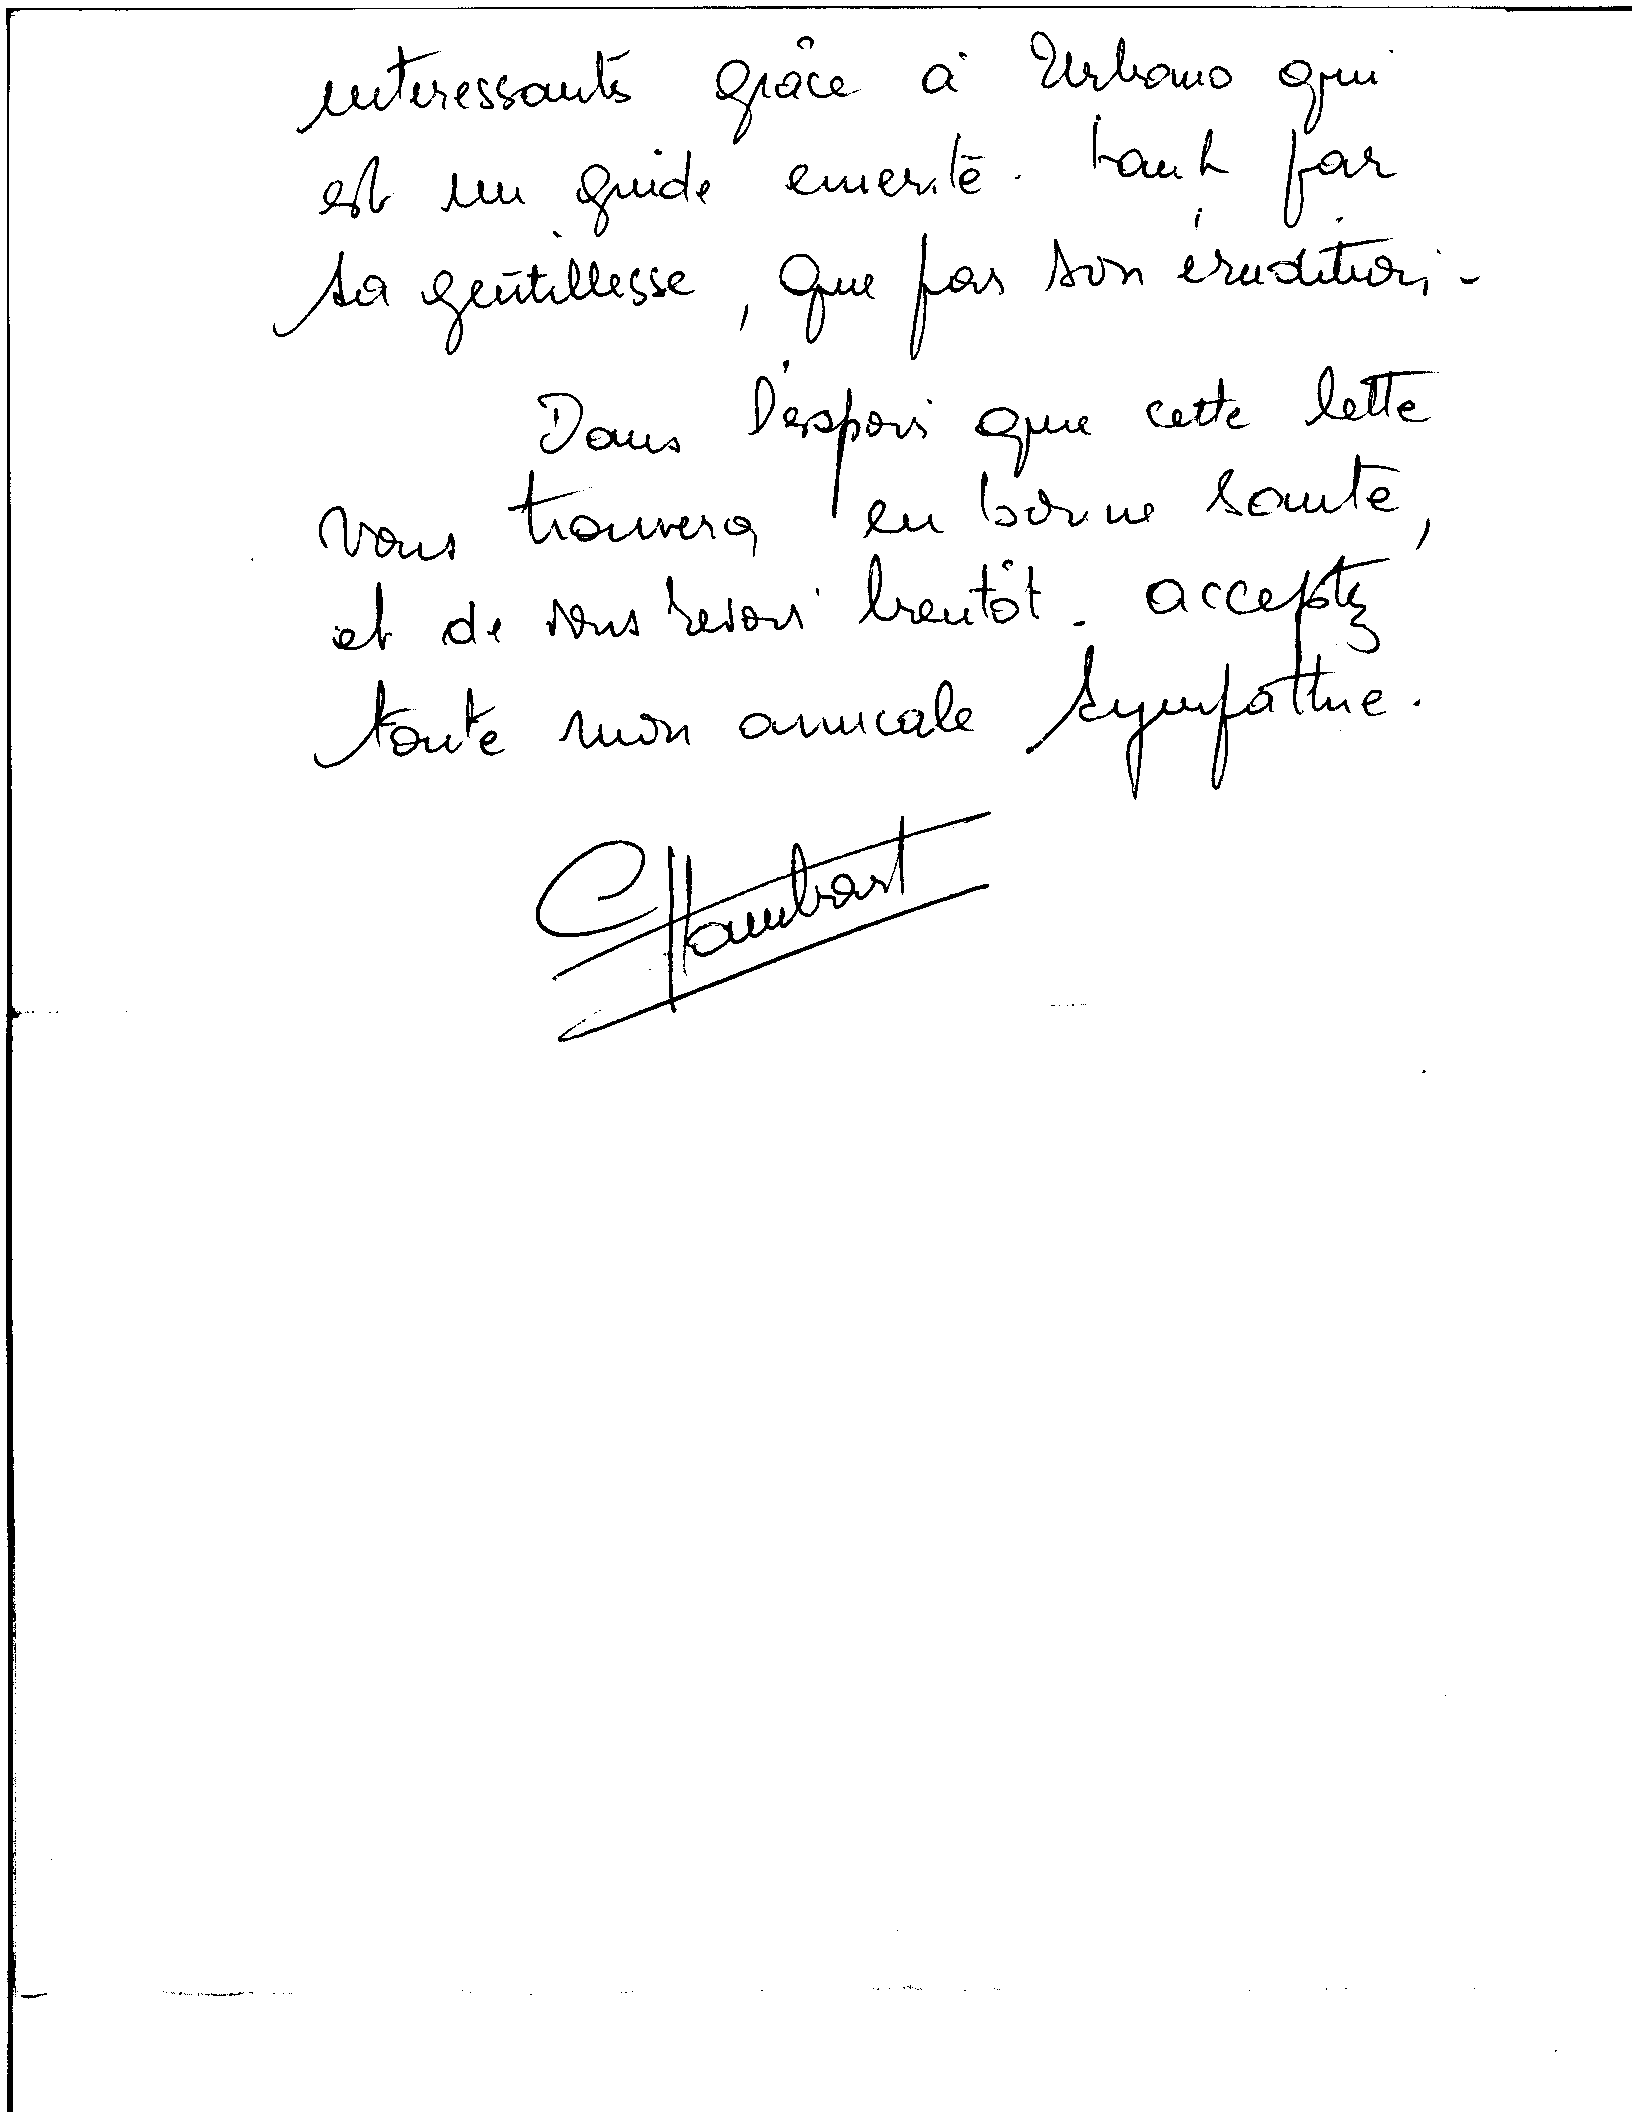 interessants grâce à Urbano qui
est un guide emerité. tant par
sa gentillesse, que par son érudition -
Dans l'espoir que cette lettre
vous trouvera en bonne santé,
et de vous revoir bientôt. acceptez
toute mon amicale sympathie.